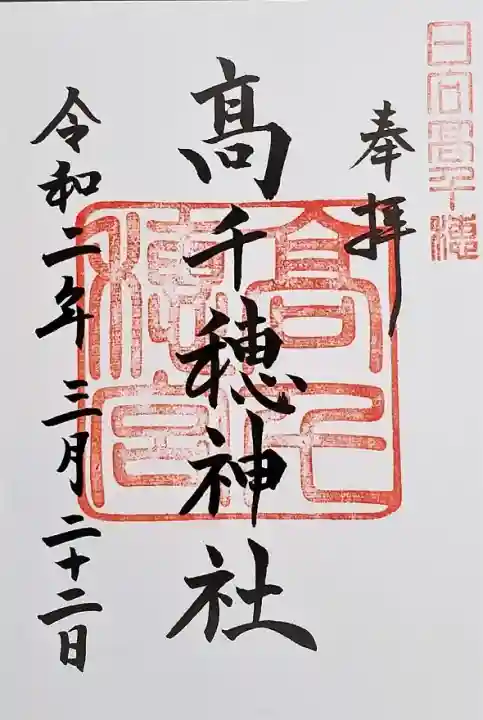 日向髙千穂
奉拝
髙千穂神社
髙千穂宮
令和二年三月二十二日